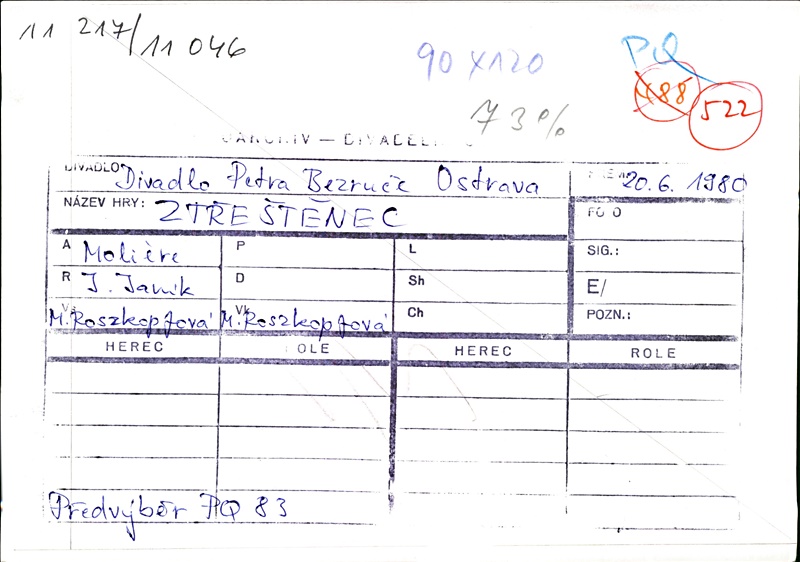 11 217/11 046
90 x 120
PQ
488
522
73%
DIVADLO Divadlo Petra Bezruče Ostrava
20.6. 1980
NÁZEV HRY: ZTŘEŠTĚNEC
FOTO
A Molière P L SIG.:
R J. Janik D Sh E/
M. Roszkopfová Vk M. Roszkopfová Ch POZN.:
HEREC OLE HEREC ROLE
Předvýběr PQ 83